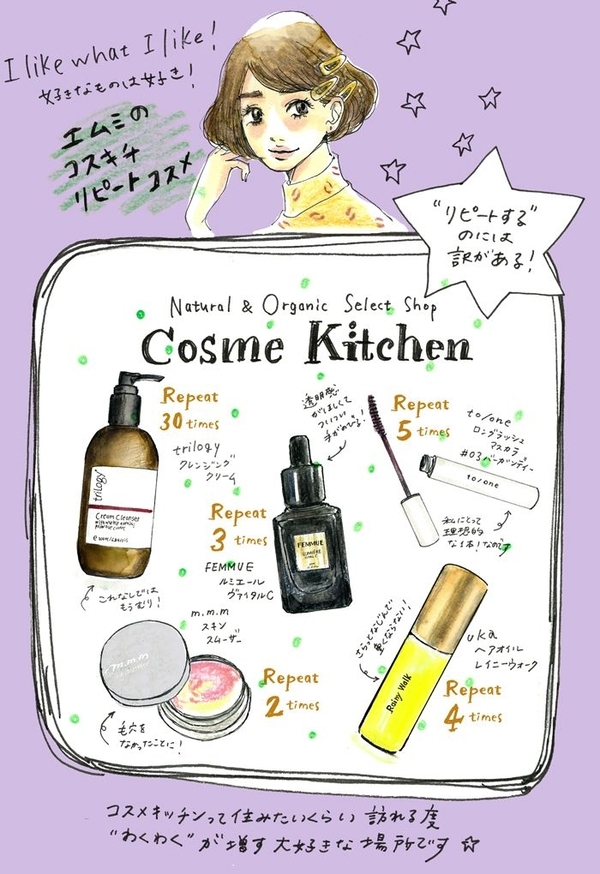 I like what I like!
好きなものは好き!
エムミの
コスキチ
リピートコスメ
"リピートする"
のには
訳がある!
Natural & Organic Select Shop
Cosme Kitchen
Repeat
30 times
trilogy
クレンジング
クリーム
trilogy
Cream Cleanser
これなしでは
もうむり!
透明感
がほしくて
ついつい
手がのびる!
Repeat
5 times
to/one
ロングラッシュ
マスカラ
#03バーガンディー
to/one
私にとって
理想的
な1本!なのです
Repeat
3 times
FEMMUE
ルミエール
ヴァイタルC
FEMMUE
m.m.m
スキン
スムーザー
m.m.m
毛穴を
なかったことに!
Repeat
2 times
さらっとなじんで
重くならない!
Rainy Walk
uka
ヘアオイル
レイニーウォーク
Repeat
4 times
コスメキッチンって住みたいくらい 訪れる度
"わくわく"が増す大好きな場所です☆